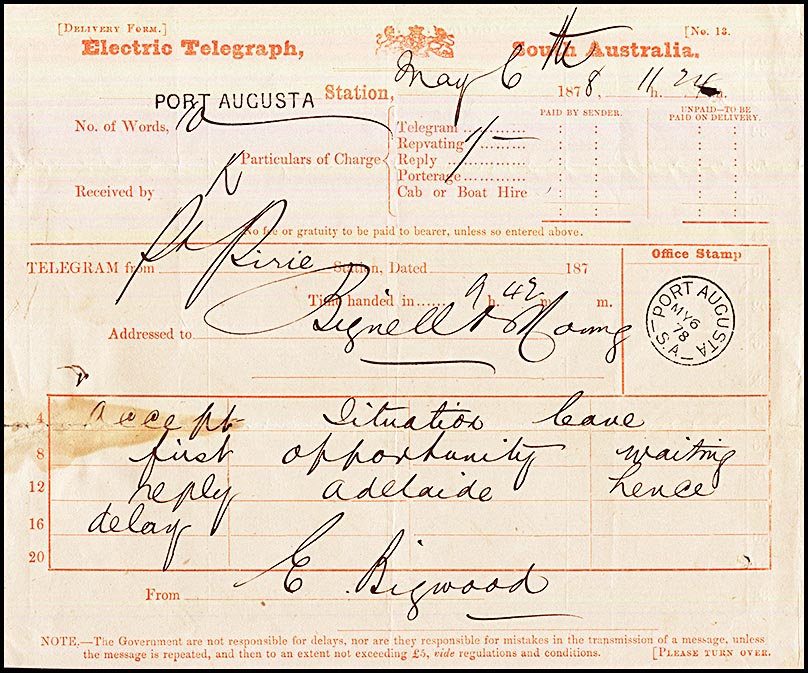 [DELIVERY FORM.] [No. 13.
Electric Telegraph, South Australia.
PORT AUGUSTA Station, May 6th 1878, 11 h. 24 m.
No. of Words, 10
Particulars of Charge
Telegram 1/-
Repeating
Reply
Porterage
Cab or Boat Hire
PAID BY SENDER.
UNPAID—TO BE PAID ON DELIVERY.
Received by K
No fee or gratuity to be paid to bearer, unless so entered above.
TELEGRAM from Pt Pirie Station, Dated 187
Time handed in 9 h. 42 m. m.
Addressed to Bignell & Young
Office Stamp
PORT AUGUSTA
MY 6
78
S.A
4 accept situation leave
8 first opportunity waiting
12 reply adelaide hence
16 delay
20
From E. Bigwood
NOTE.—The Government are not responsible for delays, nor are they responsible for mistakes in the transmission of a message, unless
the message is repeated, and then to an extent not exceeding £5, vide regulations and conditions. [PLEASE TURN OVER.